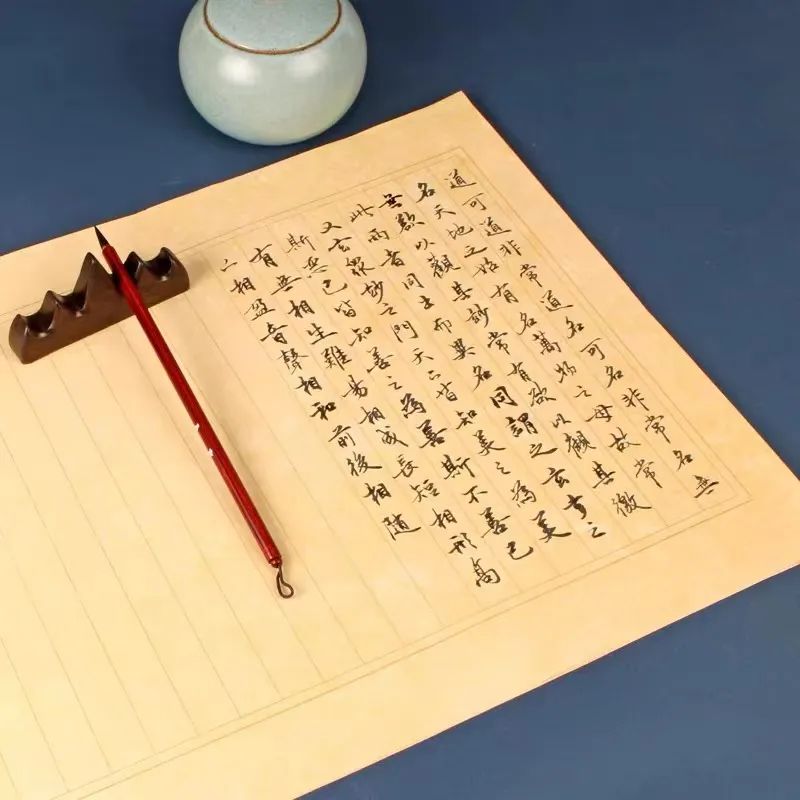 道可道非常道名可名非常名無
名天地之始有名萬物之母故常
無欲以觀其妙常有欲以觀其徼
此兩者同出而異名同謂之玄玄之
又玄眾妙之門天下皆知美之為美
斯惡已皆知善之為善斯不善已
有無相生難易相成長短相形高
下相盈音聲相和前後相隨